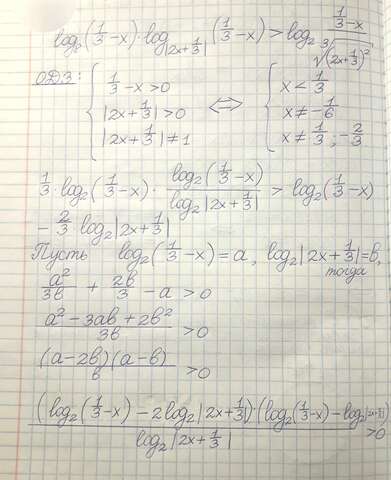 log₈(1/3-x)·log_{|2x+1/3|}(1/3-x) > log₂ (1/3-x)/∛((2x+1/3)²)
ОДЗ: { 1/3-x>0 ; |2x+1/3|>0 ; |2x+1/3|≠1 ⟺ { x<1/3 ; x≠-1/6 ; x≠1/3; -2/3
1/3·log₂(1/3-x)·log₂(1/3-x)/log₂|2x+1/3| > log₂(1/3-x)
-2/3 log₂|2x+1/3|
Пусть log₂(1/3-x)=a, log₂|2x+1/3|=b,
тогда
a²/3b + 2b/3 - a > 0
(a²-3ab+2b²)/3b > 0
(a-2b)(a-b)/b > 0
(log₂(1/3-x)-2log₂|2x+1/3|)·(log₂(1/3-x)-log₂|2x+1/3|)/log₂|2x+1/3| > 0